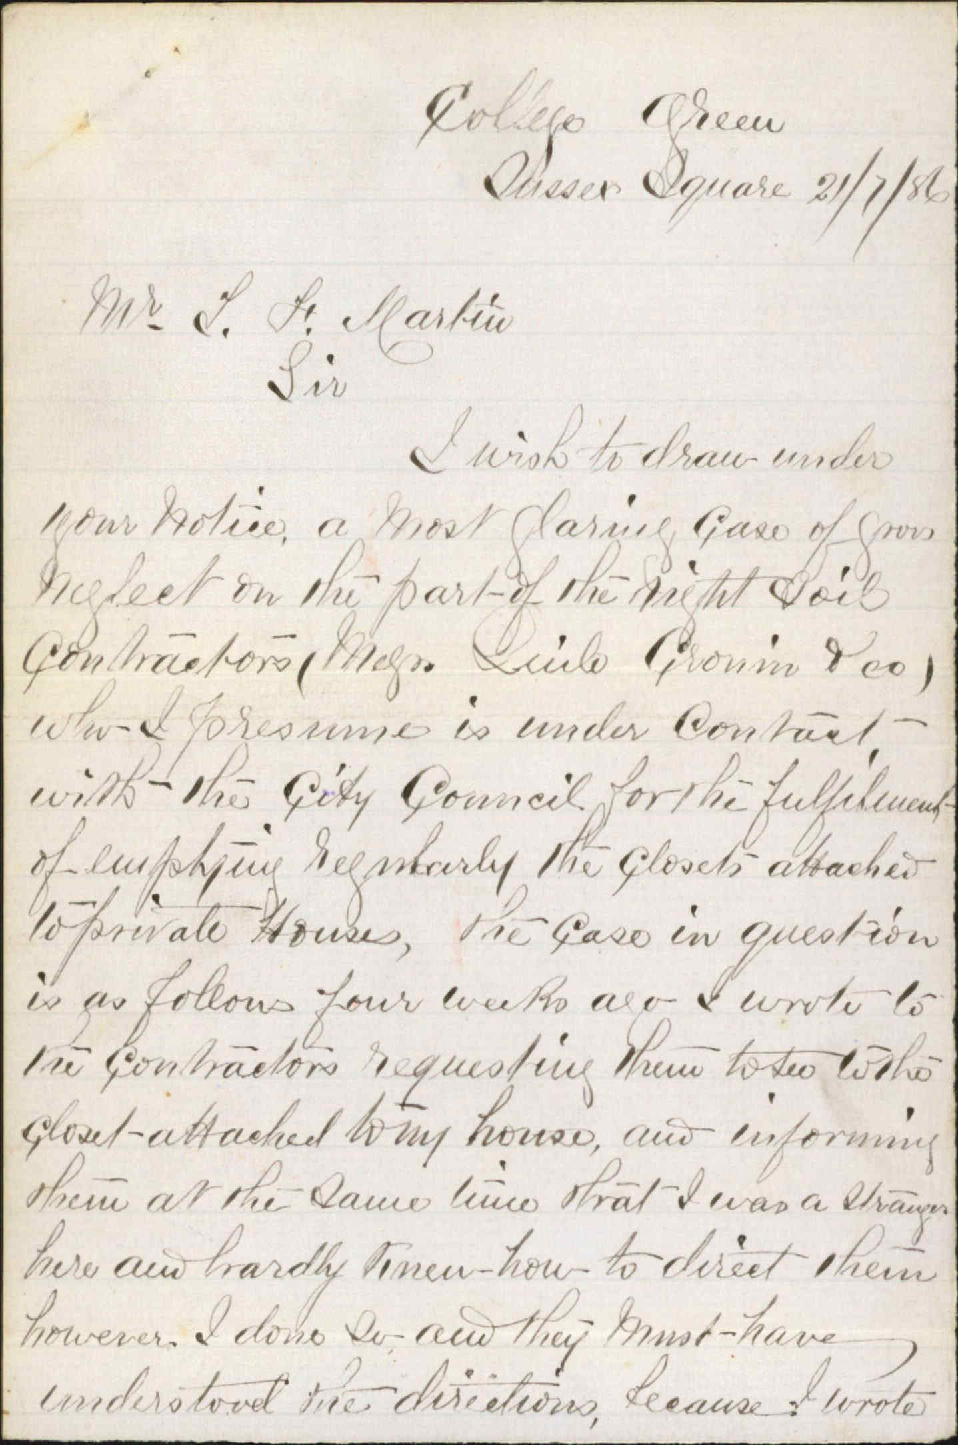 College Green
Sussex Square 21/7/86
Mr. S. H. Martin
Sir
I wish to draw under
your Notice, a Most glaring Case of gross
Neglect on the part of the Night Soil
Contractors (Messrs. Cronin & co)
who I presume is under Contract,
with the City Council for the fulfilment
of emptying regularly the Closets attached
to private Houses, the Case in question
is as follows four weeks ago I wrote to
the Contractors requesting them to see to the
Closet attached to my house, and informing
them at the Same time that I was a Stranger
here and hardly Knew how to direct them
however I done So, and they Must have
understood the directions, because I wrote